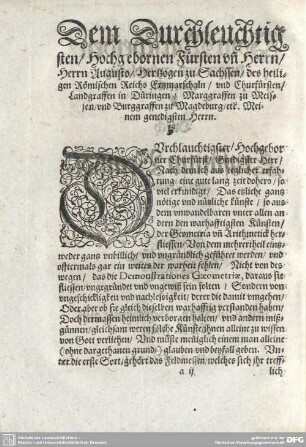 Dem Durchleuchtig
sten / Hochgebornen Fürsten vñ Herrn /
Herrn Augusto / Hertzogen zu Sachssen / des heili-
gen Römischen Reichs Ertzmarschaln / vnd Churfürsten /
Landgraffen in Düringen / Marggraffen zu Meis-
sen / vnd Burggraffen zu Magdeburg / etc. Mei-
nem genedigsten Herrn.
DVrchlauchtigster / Hochgebor
ner Churfürst / Gnedigster Herr /
Nach dem ich aus etzlicher erfah-
rung eine gute lang zeit dohero / so
viel erkündigt / Das etliche gantz
nötige vnd nützliche künste / so aus
dem vnwandelbaren vnter allen an
dern den warhafftigsten Künsten /
der Geometria vñ Arithmetick her-
fliessen / Von dem mehrertheil eint-
weder gans vnbillich / vnd vngründlich geführet werden / vnd
offtermals gar ein weites der warheit fehlen / Nicht von des-
wegen / Das die Demonstrationes Geometriæ, daraus sie
fliessen vngegründet vnd vngewiß sein solten / Sondern von
vngeschickligkeit vnd nachlessigkeit / derer die damit vmgehen /
Oder aber ob sie gleich dieselben warhafftig verstanden haben /
Doch dermassen heimlich verborgen halten / vnd andern miß-
günnen / gleichsam weren solche Künste jhnen alleine zu wissen
von Gott verliehen / Vnd müste meniglich einem man alleine
(ohne dargethanen grund) glauben vnd beyfall geben. Vn-
ter die erste Sort / gehört das Feldmessen / welches sich jhr treff-
a. ij. lich